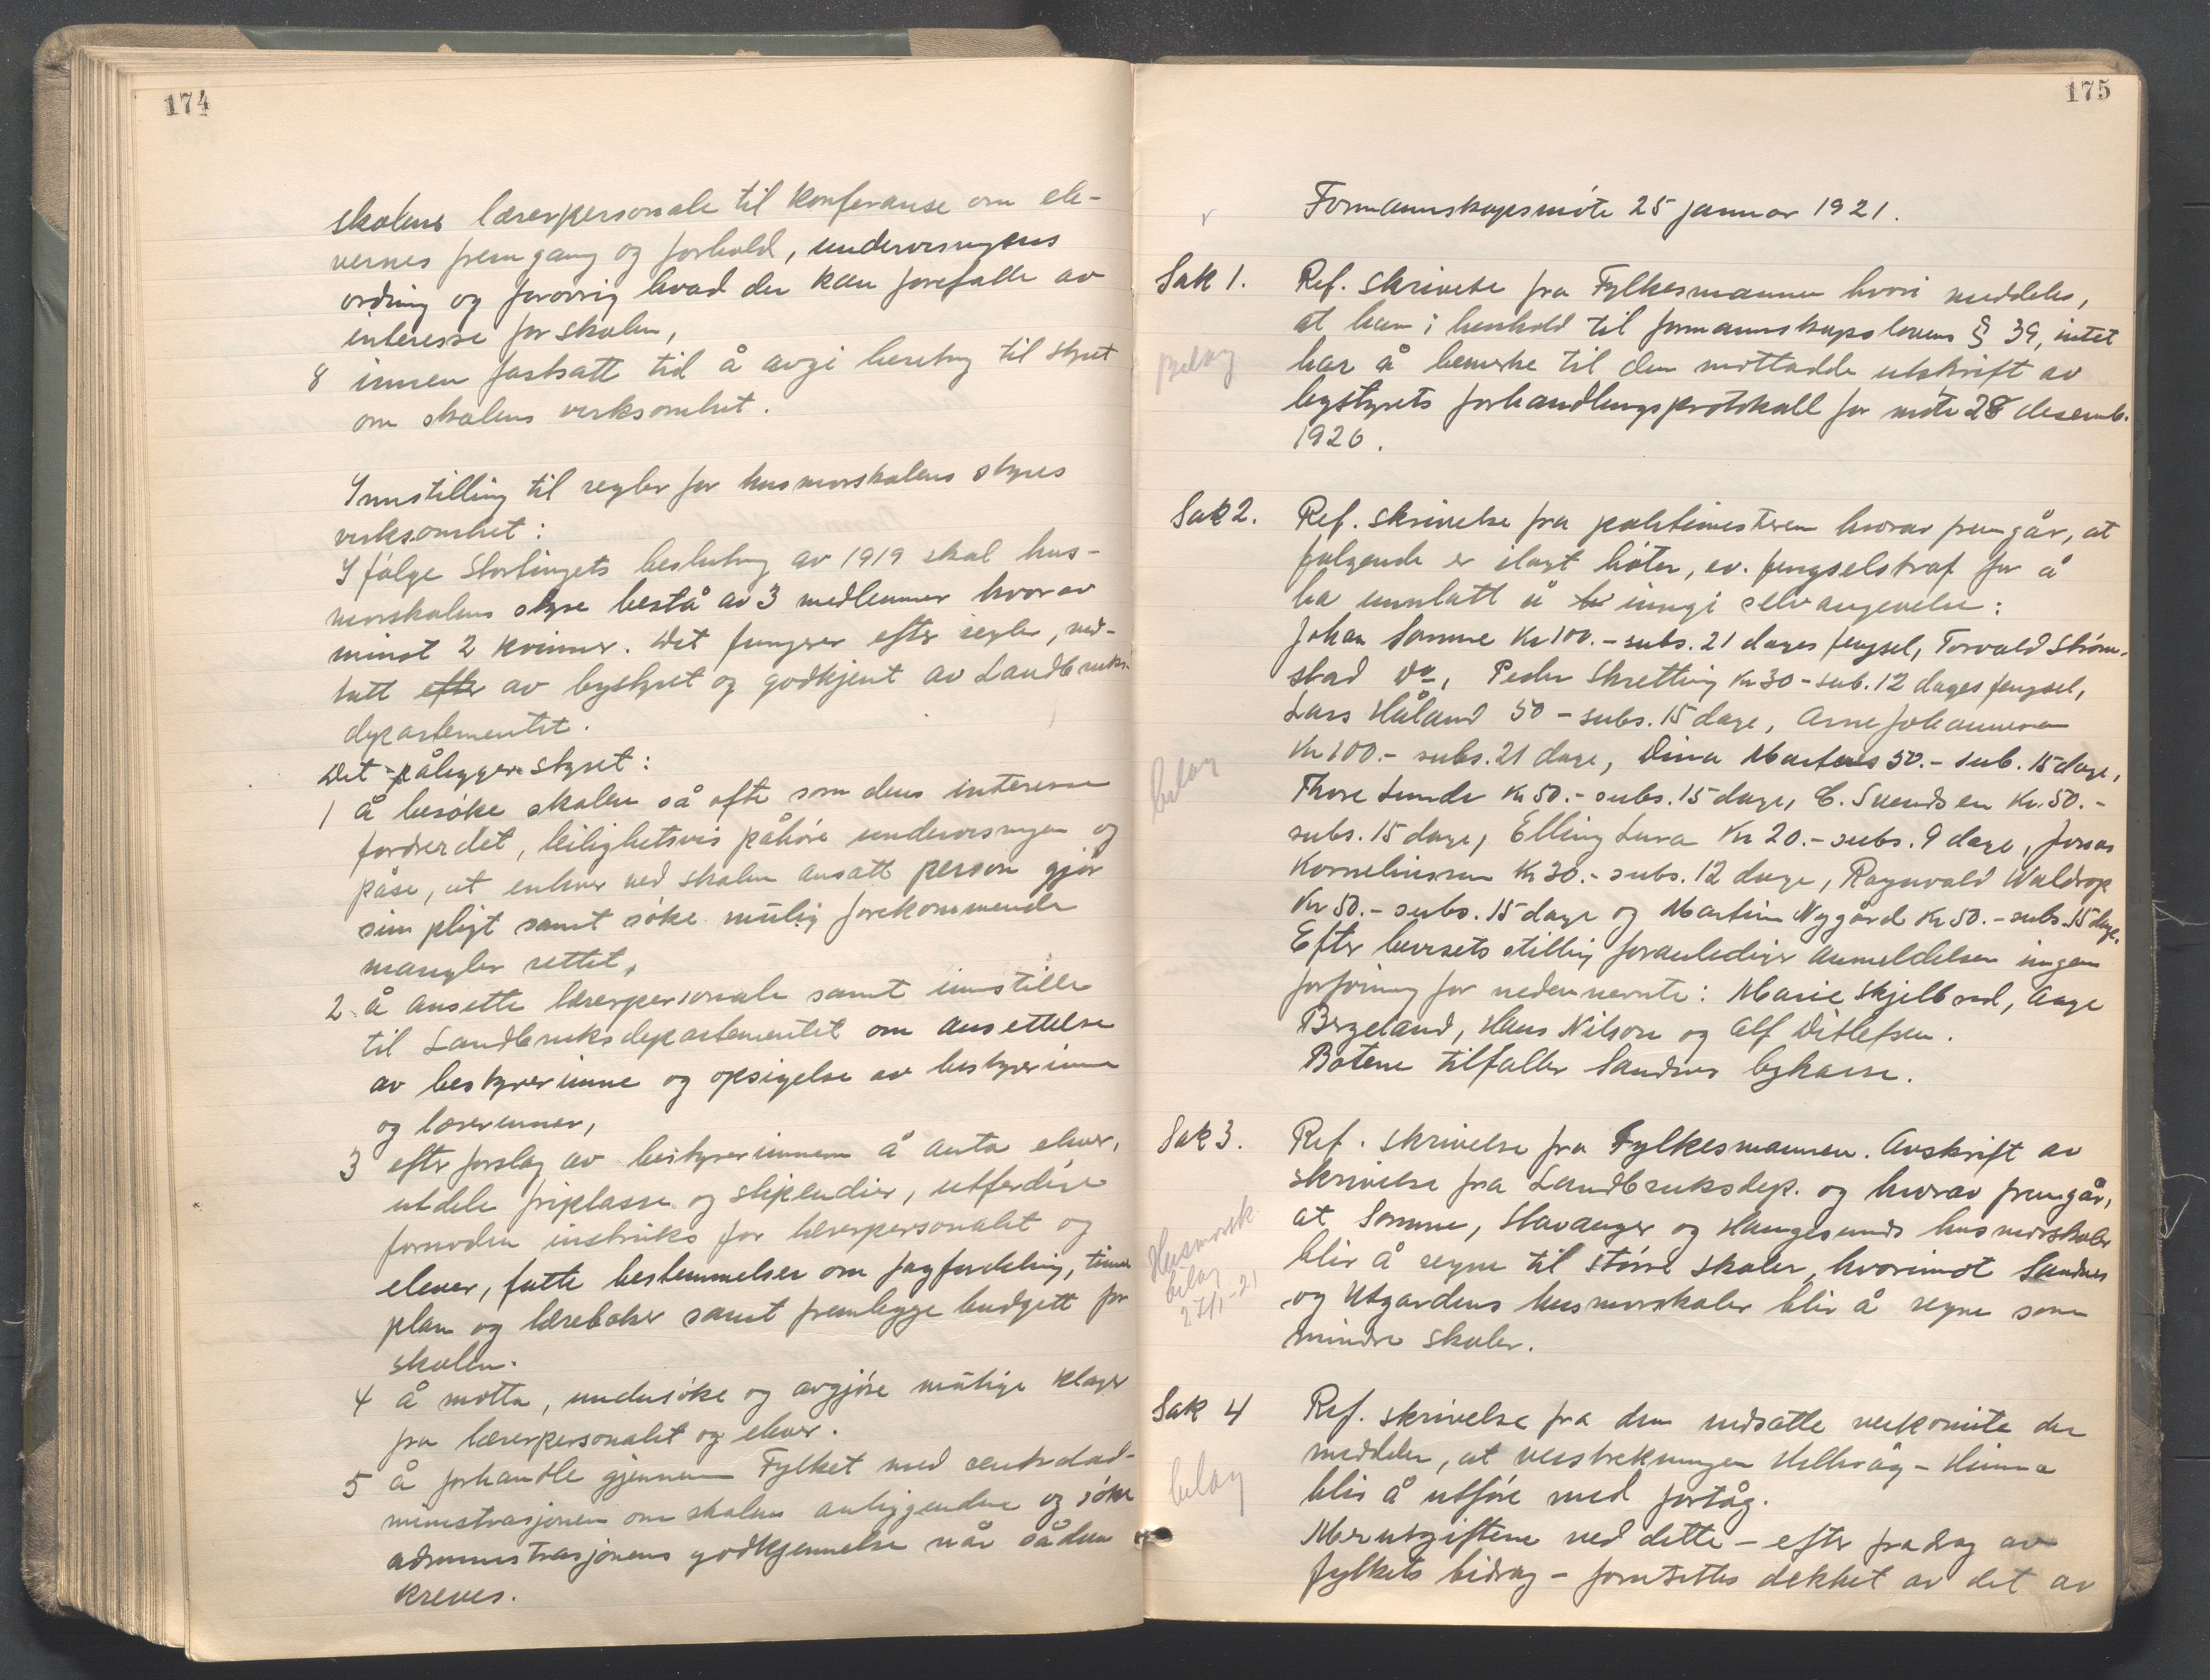 174
skolens lærerpersonale til konferanse om ele-
vernes fremgang og forhold, undervisningens
ordning og forøvrig hvad der kan forefalle av
interesse for skolen,
8 innen fastsatt tid å avgi beretng til styret
om skolens virksomhet.
Innstilling til regler for husmorskolens styres
virksomhet:
I følge Stortingets beslutng av 1919 skal hus-
morskolens styre bestå av 3 medlemmer hvorav
minst 2 kvinner. Det fungerer efter regler, ved-
tatt efter av bystyret og godkjent av Landbruks-
departementet.
Det påligger styret:
1 å besøke skolen så ofte som dens interesse
fordrer det, leilighetsvis påhøre undervisningen og
påse, at enhver ved skolen ansatt person gjør
sin pligt samt søke mulig forekommende
mangler rettet,
2 å ansette lærerpersonale samt innstille
til Landbruksdepartementet om ansettelse
av bestyrerinne og opsigelse av bestyrerinne
og lærerinner,
3 efter forslag av bestyrerinnen å anta elever,
utdele friplasse og stipendier, utferdige
fornøden instruks for lærerpersonalet og
elever, fatte bestemmelser om fagfordeling, time
plan og lærebøker samt fremlegge budgett for
skolen.
4 å motta, undersøke og avgjøre mulige klager
fra lærerpersonalet og elever.
5 å forhandle gjennem Fylket med sentralad-
ministrasjonen om skolens anliggender og søke
administrasjonens godkjennelse når sådan
kreves.
175
Formannskapsmøte 25 januar 1921.
Sak 1. Ref. skrivelse fra Fylkesmannen hvori meddeles,
at han i henhold til formannskapslovens § 39, intet
Belag har å bemerke til den mottadde utskrift av
bystyrets forhandlingsprotokoll for møte 28 desemb.
1920.
Sak 2. Ref. skrivelse fra politimesteren hvorav fremgår, at
følgende er ilagt bøter, ev. fengselstraf for å
ha unnlatt å inngi selvangivelse:
Johan Sømme Kr 100.- subs. 21 dages fengsel, Torvald Strøm-
stad do, Peder Skretting Kr 30 - sub. 12 dages fengsel,
Lars Håland 50 - subs. 15 dage, Arne Johannesen
belag Kr 100.- subs. 21 dage, Dina 50.- sub. 15 dage,
Thore Lunde Kr 50.- subs. 15 dage, C. Svendsen Kr. 50.-
subs. 15 dage, Elling Lura Kr 20.- subs. 9 dage, Jonas
Korneliussen Kr 30.- subs. 12 dage, Ragnvald Waldrop
Kr 50.- subs. 15 dage og Martin Nygård Kr 50.- subs. 15 dage.
Efter bevisets stilling foranlediger anmeldelsen ingen
forføining for nedennevnte: Marie Skjelbred, Aage
Bergeland, Hans Nilson og Alf Ditlefsen.
Bøtene tilfaller Sandnes bykasse.
Sak 3. Ref. skrivelse fra Fylkesmannen. Avskrift av
skrivelse fra Landbruksdep. og hvorav fremgår,
Husmorsk. at Sømme, Stavanger og Haugesunds husmorskoler
belag blir å regne til større skoler, hvorimot Sandnes
27/1-21 og Utgardens husmorskoler blir å regne som
mindre skoler.
Sak 4 Ref. skrivelse fra den nedsatte veikomite der
meddeler, at veistrekningen Hillevåg - Hinna
belag blir å utføre med fortåg.
Merutgiftene ved dette - efter fradrag av
fylkets bidrag - forutsettes dekket av det av